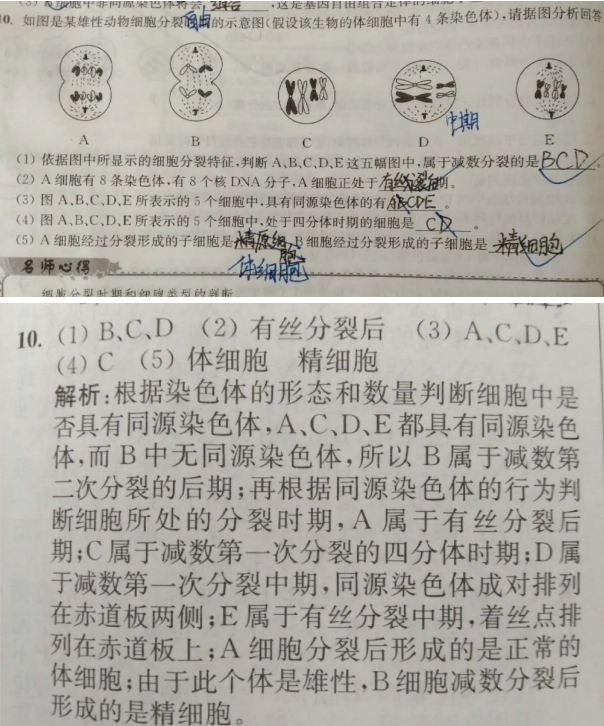 10. 如图是某雄性动物细胞分裂 的示意图(假设该生物的体细胞中有 4 条染色体),请据图分析回答
自由
中期
A B C D E
(1) 依据图中所显示的细胞分裂特征,判断 A、B、C、D、E 这五幅图中,属于减数分裂的是BCD。
(2) A 细胞有 8 条染色体,有 8 个核 DNA 分子,A 细胞正处于有丝分裂后期。
(3) 图 A、B、C、D、E 所表示的 5 个细胞中,具有同源染色体的有ABCDE。
(4) 图 A、B、C、D、E 所表示的 5 个细胞中,处于四分体时期的细胞是 CD 。
(5) A 细胞经过分裂形成的子细胞是精原细胞,B 细胞经过分裂形成的子细胞是 精细胞
体细胞
名师心得
细胞分裂时期和细胞类型的判断
10. (1) B、C、D (2) 有丝分裂后 (3) A、C、D、E
(4) C (5) 体细胞 精细胞
解析:根据染色体的形态和数量判断细胞中是
否具有同源染色体,A、C、D、E 都具有同源染色
体,而 B 中无同源染色体,所以 B 属于减数第
二次分裂的后期;再根据同源染色体的行为判
断细胞所处的分裂时期,A 属于有丝分裂后
期;C 属于减数第一次分裂的四分体时期;D 属
于减数第一次分裂中期,同源染色体成对排列
在赤道板两侧;E 属于有丝分裂中期,着丝点排
列在赤道板上;A 细胞分裂后形成的是正常的
体细胞;由于此个体是雄性,B 细胞减数分裂后
形成的是精细胞。